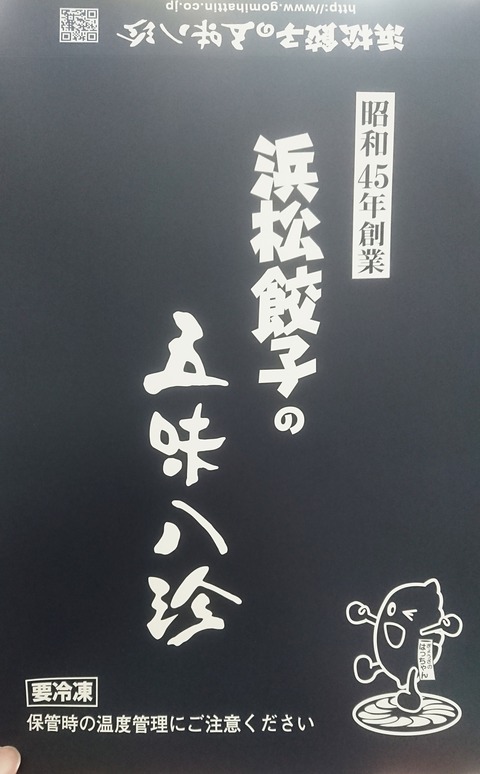 浜松餃子の五味八珍
http://www.gomihattin.co.jp
昭和45年創業
浜松餃子の
五味八珍
ぎょうざの
はっちゃん
要冷凍
保管時の温度管理にご注意ください